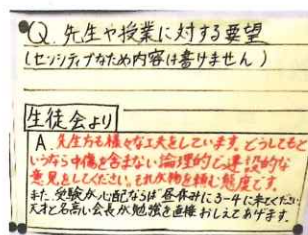 Q. 先生や授業に対する要望
(センシティブなため内容は書けません)
生徒会より
A. 先生方も様々な工夫をしています。どうしてもと
いうなら中傷を含まない論理的で建設的な
意見をしてください。それが物を頼む態度です。
また、受験が心配ならば昼休みに3-4に来てください
天才と名高い会長が勉強を直接おしえてあげます。